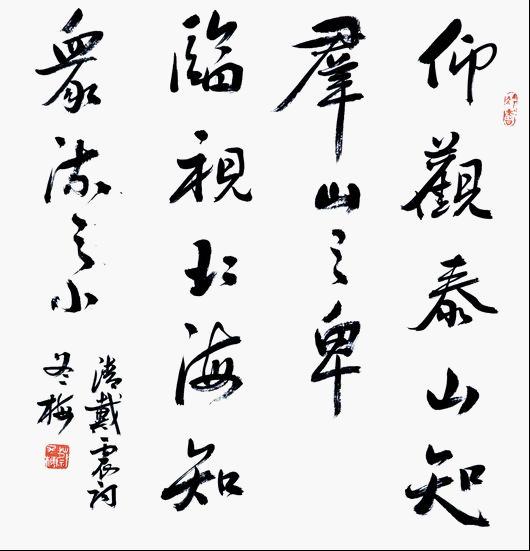 仰觀泰山知
羣山之卑
臨視北海知
眾流之小
清戴震
冬梅